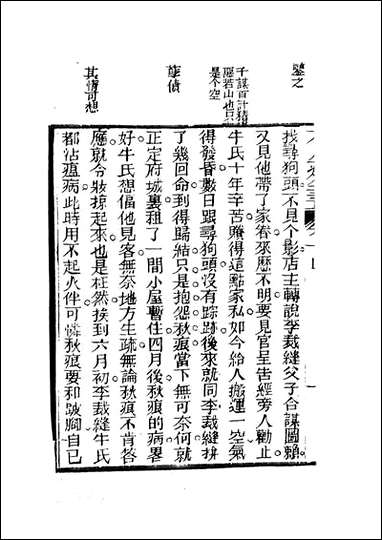 之
千謀百計積
應若山也只
是个空
孽債
其情可想
找尋狗頭不見个影店主轉說李裁縫父子合謀圖賴
又見他帶了家眷來歷不明要見官呈告經旁人勸止
牛氏十年辛苦賺得這點家私如今給人搬運一空氣
得發昏數日跟尋狗頭沒有踪跡後來就同李裁縫拚
了幾回命到得歸結只是抱怨秋痕當下無可奈何就
正定府城裏租了一間小屋暫住四月後秋痕的病畧
好牛氏想偪他見客無奈地方生疏無論秋痕不肯答
應就令妝掠起來也是枉然挨到六月初李裁縫牛氏
都沾瘟病此時用不起火伴可憐秋痕要和跛腳自己